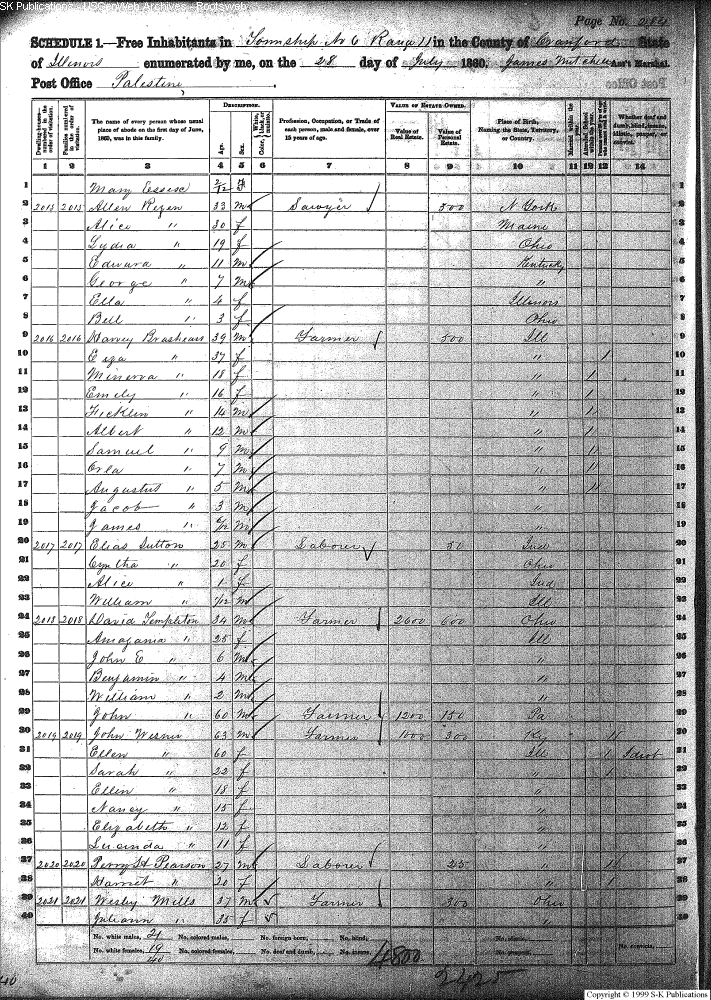 SK Publications - USGenWeb Archives - Rootsweb
Page No. 284
SCHEDULE 1.—Free Inhabitants in Township No 6 Range 11 in the County of Crawford State
of Illinois enumerated by me, on the 28 day of July 1860. James Mitchell Ass't Marshal.
Post Office Palestine
Dwelling-houses—numbered in the order of visitation. Families numbered in the order of visitation. The name of every person whose usual place of abode on the first day of June, 1860, was in this family. DESCRIPTION. Age. Sex. Color, White, black, or mulatto. Profession, Occupation, or Trade of each person, male and female, over 15 years of age. VALUE OF ESTATE OWNED. Value of Real Estate. Value of Personal Estate. Place of Birth, Naming the State, Territory, or Country. Married within the year. Attended School within the year. Whether deaf and dumb, blind, insane, idiotic, pauper, or convict.
1 2 3 4 5 6 7 8 9 10 11 12 13 14
1 Mary Essex 2/12 f 1
2 2015 2015 Allen Rezen 33 m Sawyer 500 N York 2
3 Alice " 30 f Maine 3
4 Lydia " 19 f Ohio 4
5 Edward " 11 m Kentucky 5
6 George " 7 m " 6
7 Ella " 4 f Illinois 7
8 Bell " 3 f Ohio 8
9 2016 2016 Harvey Brashears 39 m Farmer 500 Ill 9
10 Eiza " 37 f " 1 10
11 Minerva " 18 f " 1 11
12 Emely " 16 f " 1 12
13 Ficklin " 14 m " 1 13
14 Albert " 12 m " 1 14
15 Samuel " 9 m " 1 15
16 Orla " 7 m " 1 16
17 Augustus " 5 m " 1 17
18 Jacob " 3 m " 18
19 James " 6/12 m " 19
20 2017 2017 Elias Sutton 25 m Laborer 50 Ind 20
21 Cyntha " 20 f Ohio 21
22 Alice " 1 f Ind 22
23 William " 1/12 m Ill 23
24 2018 2018 David Templeton 34 m Farmer 2600 600 Ohio 24
25 " 25 f Ill 25
26 John E " 6 m " 26
27 Benjamin " 4 m " 27
28 William " 2 m " 28
29 John " 60 m Farmer 1200 150 Pa 29
30 2019 2019 John Wesner 63 m Farmer 1000 300 Ky 30
31 Ellen " 60 f Ill 1 Idiot 31
32 Sarah " 22 f " 1 32
33 Ellen " 18 f " 33
34 Nancy " 15 f " 34
35 Elizabeth " 12 f " 35
36 Lucinda " 11 f " 36
37 2020 2020 Perry H Pearson 27 m Laborer 25 37
38 Harriet " 20 f " 1 38
39 2021 2021 Wesley Mills 37 m Farmer 300 Ohio 39
40 Juliann " 35 f 40
No. white males, 21 No. colored males, No. foreign born, No. blind,
No. white females, 19 No. colored females, No. deaf and dumb, No. insane, No. idiotic, No. paupers, No. convicts,
40 4800
2425
Copyright © 1999 S-K Publications